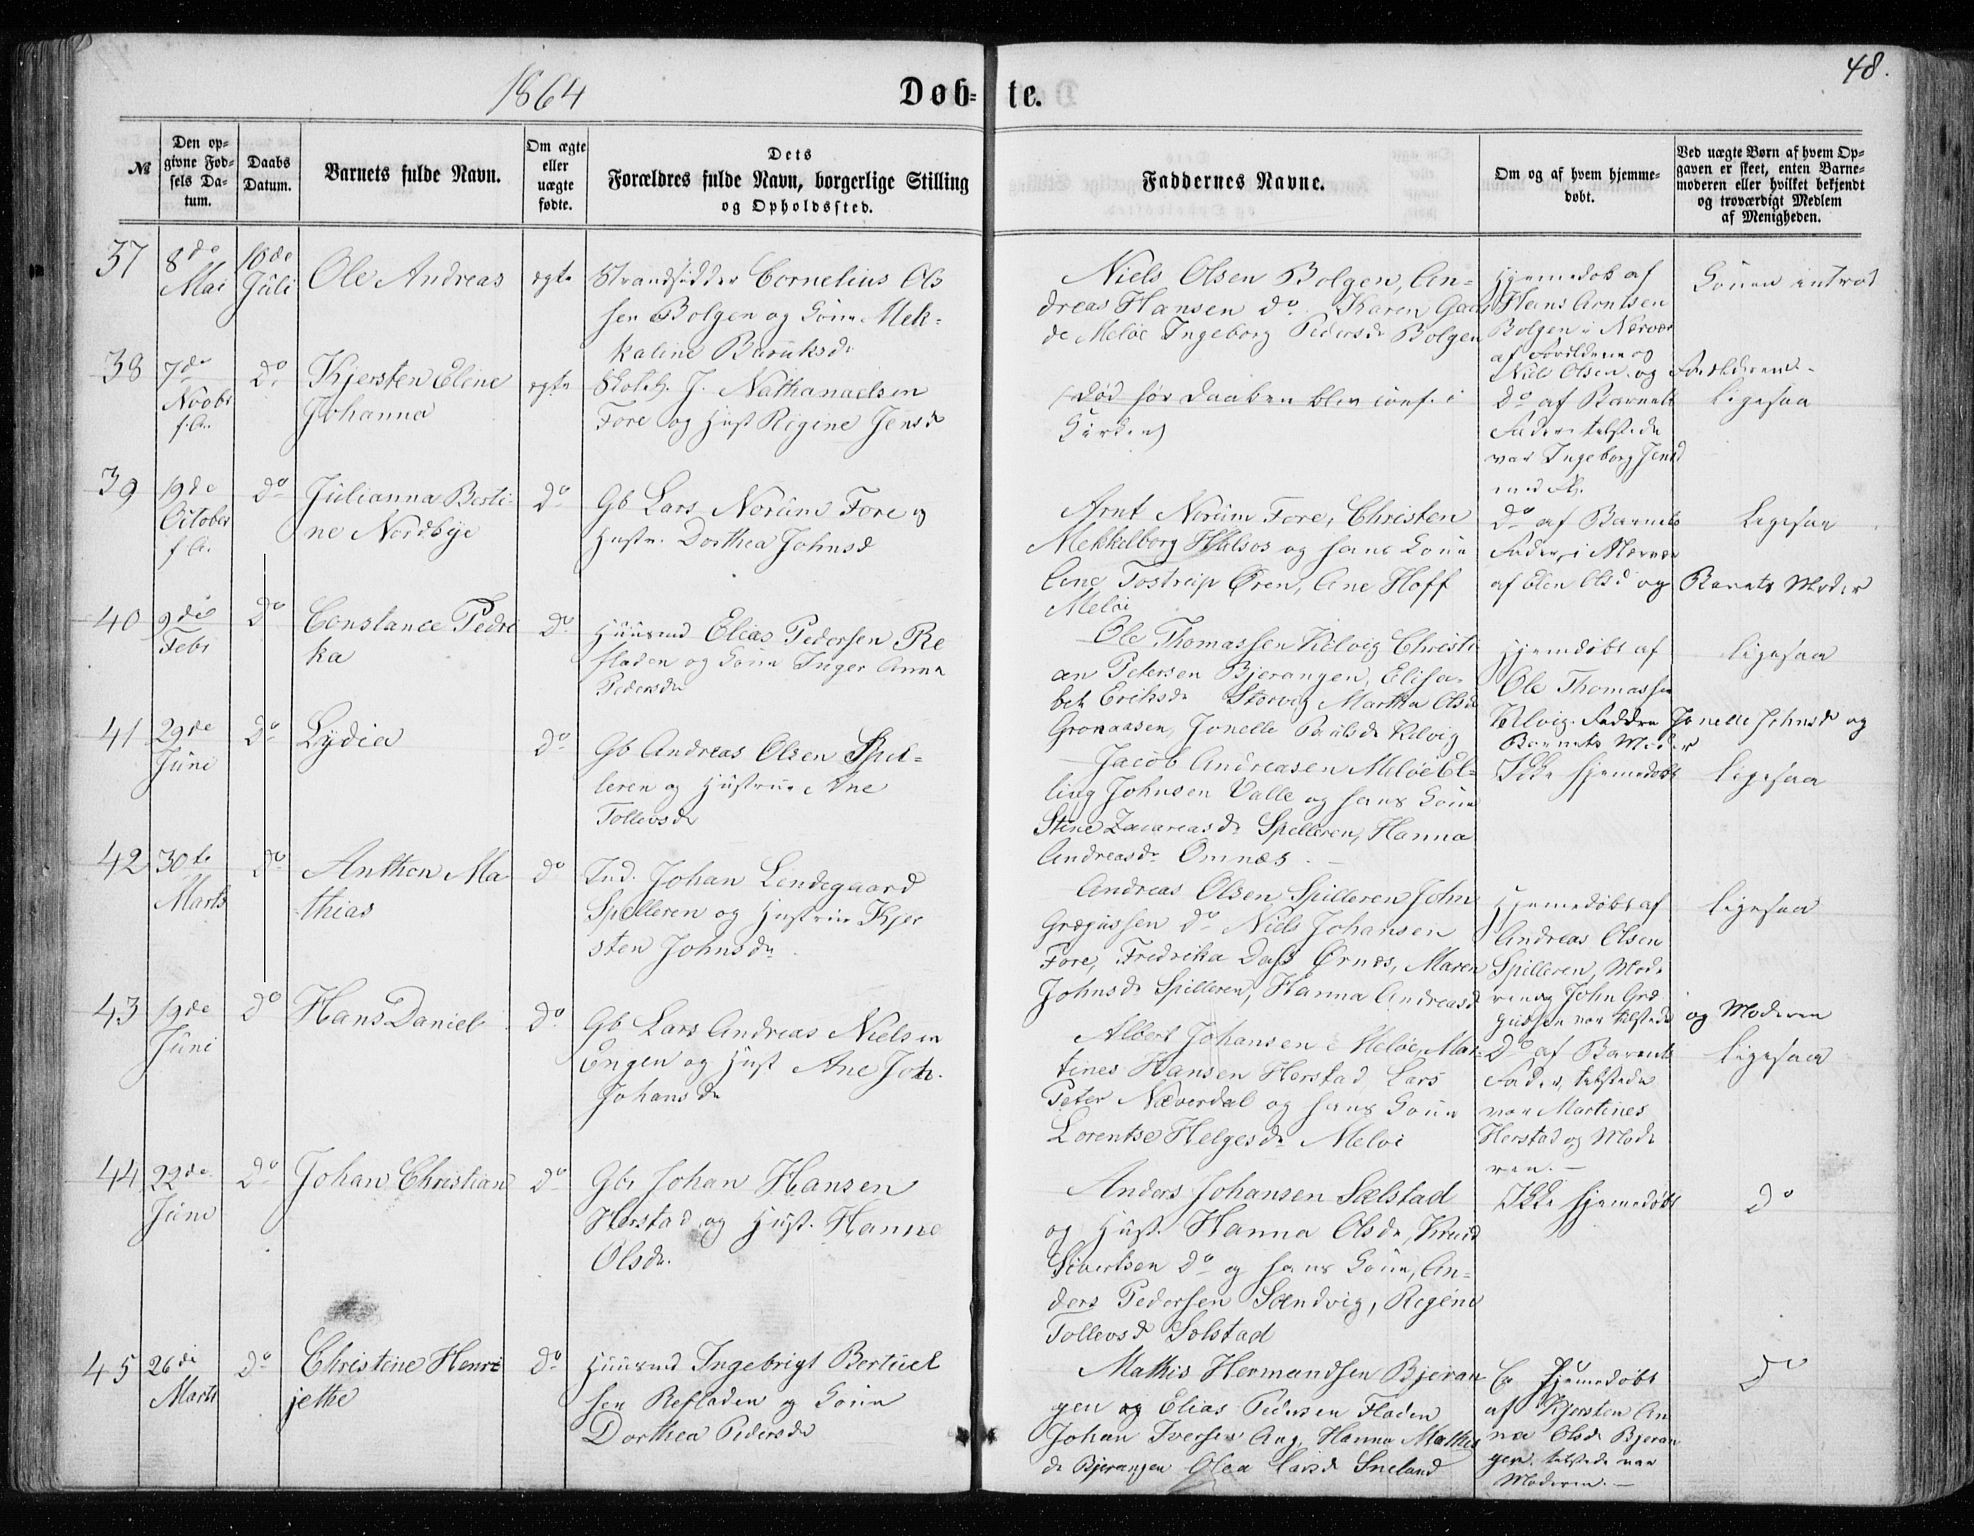 48.
1864
Døb- te.
№
Den op-
givne Fød-
sels Da-
tum.
Daabs
Datum.
Barnets fulde Navn.
Om ægte
eller
uægte
fødte.
Dets
Forældres fulde Navn, borgerlige Stilling
og Opholdssted.
Faddernes Navne.
Om og af hvem hjemme-
døbt.
Ved uægte Børn af hvem Op-
gaven er skeet, enten Barne-
moderen eller hvilket bekjendt
og troværdigt Medlem
af Menigheden.
37
8de
Mai
10de
Juli
Ole Andreas
ægte
Strandsidder Cornelius Ols
sen Bolgen og Kone Mek-
kaline Baruksdr
Niels Olsen Bolgen, An-
dreas Hansen do Karen
de Meløe Ingeborg Pedersdr Bolgen
Hjemmedøb af
Hans Arntsen
Bolgen i Nærvær
af Forældrene og
Niels Olsen. og Forældrene
Konen introd
38
7de
Novbr
f. A.
do
Kjersten Eline
Johanna
ægte
J. Nathanaelsen
Fore og Hust Regine Jensd
(Død før Daaben blev conf. i
Kirken)
do af Barnets
Fader tilstede
var Ingeborg Jensd
ligesaa
39
19de
October
f. A.
do
Julianna Berti-
ne Nordbye
do
Gb Lars Norum Fore og
Hustr. Dorthea Johnsd
Arnt Norum Fore, Christen
Mekkelborg Halsos og hans Kone
Ane Tostrup Øren, Ane Hoff
Meløe
do af Barnets
Fader, i Nærvær
af Elen Olsd og Barnets Moder
ligesaa
40
9de
Febr
do
Constance Pedri
ka
do
Huusmd Elias Pedersen Re
fladen og Kone Inger Anna
Pedersdr
Ole Thomassen Kilvig Christi
an Petersen Bjerangen, Elisa-
bet Eriksdr Storvig Martha Olsd
Gronaasen, Jonelle Paulsdr Kilvig
Hjemdøbt af
Ole Thomassen
Kilvig. Faddre Jonelle Johnsdr og
Barnets Moder
ligesaa
41
29de
Juni
do
Lydia
do
Gb Andreas Olsen Spil-
leren og Hustrue Ane
Tollevsdr
Jacob Andreasen Meløe El-
ling Johnsen Valle og hans Kone
Stine Zacariasdr Spilleren, Hanna
Andreasdr Omnæs.
Ikke hjemmedøbt
ligesaa
42
30te
Marts
do
Anthon Ma-
thias
do
Ind. Johan Lendegaard
Spilleren og Hustrue Kjer
sten Johnsdr
Andreas Olsen Spilleren John
Grægussen do Niels Johansen
Fore, Fredrika Dass Ørnes, Maren
Johnsdr Spilleren, Hanna Andreasd
Hjemmedøbt af
Andreas Olsen
Spilleren, Mode
ren og John Græ
gussen var tilstede og Moderen
ligesaa
43
19de
Juni
do
Hans Daniel
do
Gb Lars Andreas Nielsen
Engen og Hust Ane Joh.
Johansdr
Albert Johansen Meløe, Mar-
tines Hansen Herstad Lars
Peter Næverdal og hans Kone
Lorentse Helgesdr Meløe
do af Barnets
Fader, tilstede
var Martines
Herstad og Mode
ren.
ligesaa
44
22de
Juni
do
Johan Christian
do
Gbr Johan Hansen
Herstad og Hust. Hanne
Olsdr.
Anders Johansen Sælstad
og Hust. Hanna Olsdr, Knud
Sivertsen do og hans Kone, An-
ders Pedersen Sandvig, Regine
Tollevsd Solstad
Ikke hjemmedøbt
do
45
26de
Marts
do
Christine Henri
jette
do
Huusmd Ingebrigt Bertuel
sen Refladen og Kone
Dorthea Pedersdr
Mathis Hermandsen Bjeran
gen og Elias Pedersen Fladen
Johan Iversen Ang. Hanna Mathis
dr Bjerangen Olea Larsdr Sneland
Er hjemmedøbt
af Kjersten An
na Olsdr Bjeran
gen. tilstede var
Moderen.
do